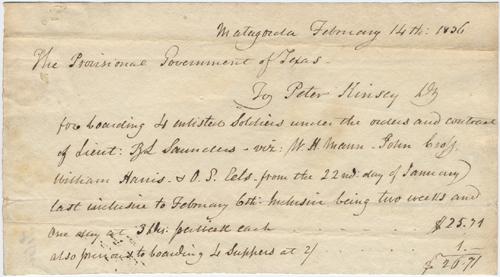 Matagorda February 14th: 1836
The Provisional Government of Texas.
To Peter Kinsey Dr
for boarding 4 enlisted Soldiers under the orders and contract
of Lieut: B L Saunders - viz: W. H. Mann - John Cross
William Harris - & O. S. Eels. from the 22nd. day of January
last inclusive to February 6th. Inclusive being two weeks and
one day at 3 per week each $25.71
also previous to boarding 4 Suppers at 2/ 1.-
$26.71